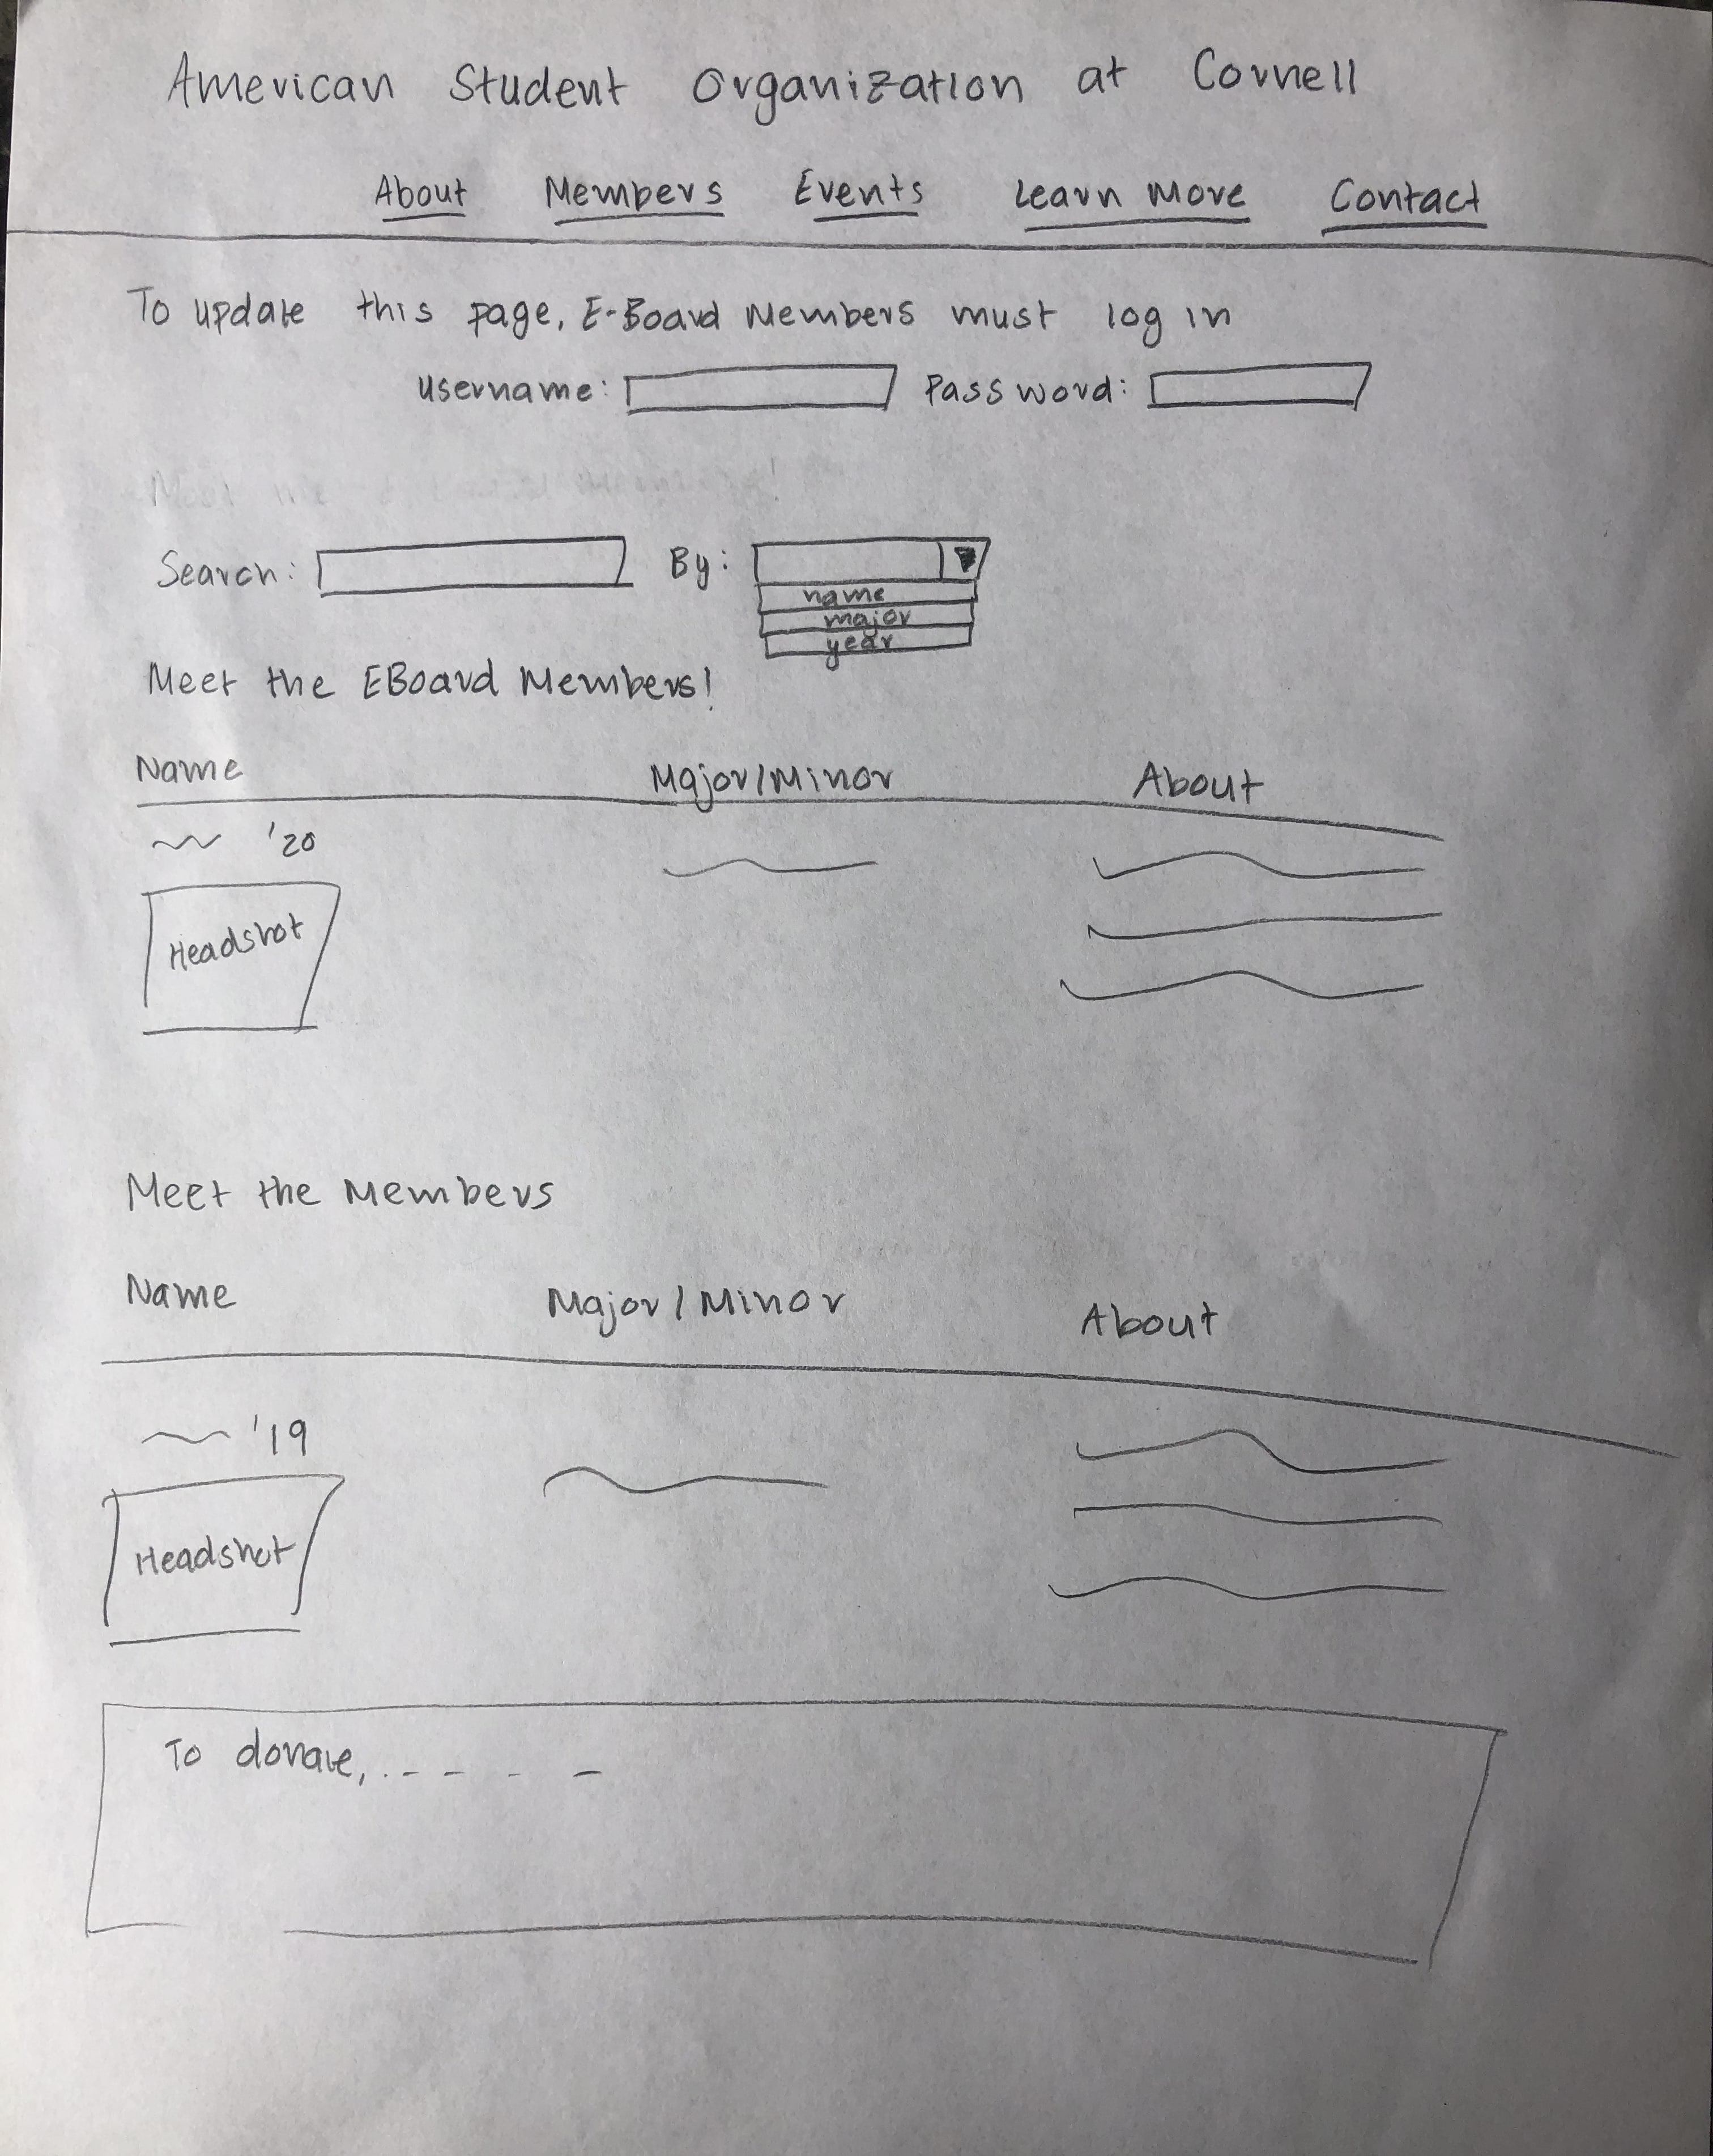 American Student Organization at Cornell
About Members Events Learn More Contact
To update this page, E-Board Members must log in
Username: Password:
Search: By:
name
major
year
Meet the EBoard Members!
Name Major/Minor About
'20
Headshot
Meet the Members
Name Major/Minor About
'19
Headshot
To donate,